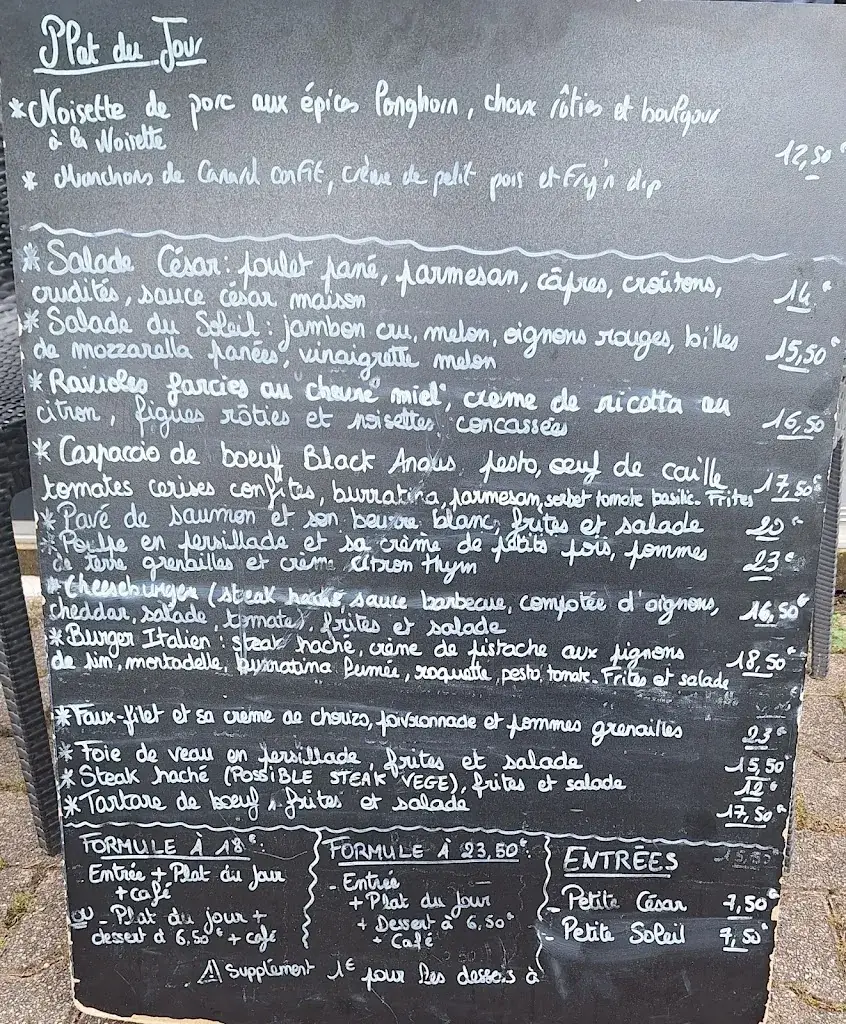 Plat du Jour
* Noisette de porc aux épices Ponghorn, choux rôties et boulgour
à la Noisette
12,50€
* Manchons de Canard confit, crème de petit pois et Fry'n dip
* Salade César : poulet pané, parmesan, câpres, croûtons,
crudités, sauce césar maison 14€
* Salade du Soleil : jambon cru, melon, oignons rouges, billes
de mozzarella panées, vinaigrette melon 15,50€
* Ravioles farcies au chèvre miel, crème de ricotta au
citron, figues rôties et noisettes concassées 16,50€
* Carpaccio de boeuf Black Angus, pesto, oeuf de caille
tomates cerises confites, burratina, parmesan, sorbet tomate basilic. Frites 17,50€
* Pavé de saumon et son beurre blanc, frites et salade 20€
* Poulpe en persillade et sa crème de petits pois, pommes
de terre grenailles et crème citron thym 23€
* Cheeseburger (steak haché, sauce barbecue, compotée d'oignons,
cheddar, salade, tomate), frites et salade 16,50€
* Burger Italien : steak haché, crème de pistache aux pignons
de pin, mortadelle, burratina fumée, roquette, pesto tomate. Frites et salade 18,50€
* Faux-filet et sa crème de chorizo, poivronnade et pommes grenailles 23€
* Foie de veau en persillade, frites et salade 15,50
* Steak haché (POSSIBLE STEAK VEGE), frites et salade 12€
* Tartare de boeuf, frites et salade 17,50€
FORMULE À 18€ :
Entrée + Plat du jour
+ café
ou - Plat du jour +
dessert à 6,50€ + café
FORMULE À 23,50€ :
- Entrée
+ Plat du jour
+ Dessert à 6,50€
+ Café
ENTRÉES
- Petite César 7,50€
- Petite Soleil 7,50€
⚠ Supplément 1€ pour les desserts à